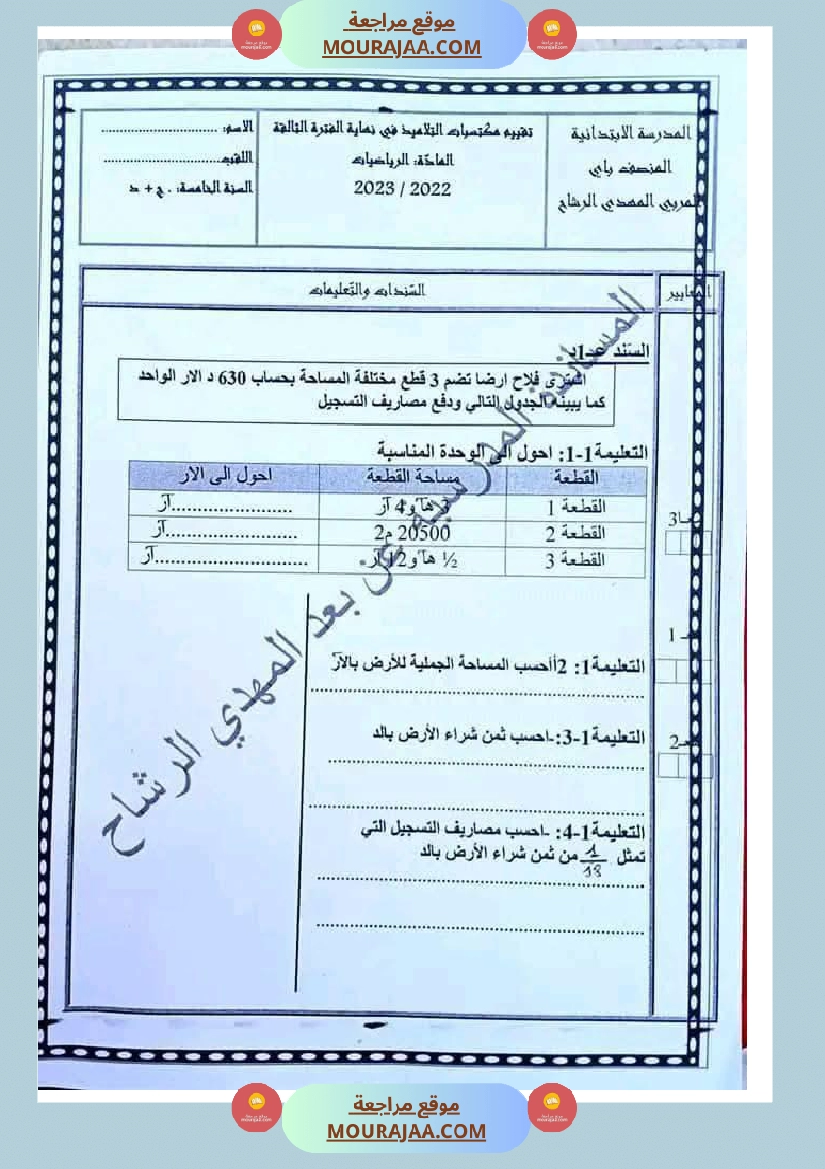 موقع مراجعة
MOURAJAA.COM
المدرسة الابتدائية
المنصف باي
المربي المهدي الرشاح
تقييم مكتسبات التلاميذ في نهاية الفترة الثالثة
المادة: الرياضيات
2023 / 2022
الاسم: ................................
اللقب................................
السنة الخامسة: . ج + د
المعايير
السندات والتعليمات
السند عـ1ـدد
اشترى فلاح ارضا تضم 3 قطع مختلفة المساحة بحساب 630 د الار الواحد
كما يبينه الجدول التالي ودفع مصاريف التسجيل
التعليمة1-1: احول الى الوحدة المناسبة
القطعة	مساحة القطعة	احول الى الار
القطعة 1	3 هآ و4 آر	........................آر
القطعة 2	20500 م2	..........................آر
القطعة 3	½ هآ و12 آر	..............................آر
معـ3
معـ1
التعليمة1: 2أحسب المساحة الجملية للأرض بالآر
معـ2
التعليمة1-3:-احسب ثمن شراء الأرض بالد
التعليمة1-4: -احسب مصاريف التسجيل التي
تمثل 1/18 من ثمن شراء الأرض بالد
المساندة المدرسية عن بعد المهدي الرشاح
موقع مراجعة
MOURAJAA.COM